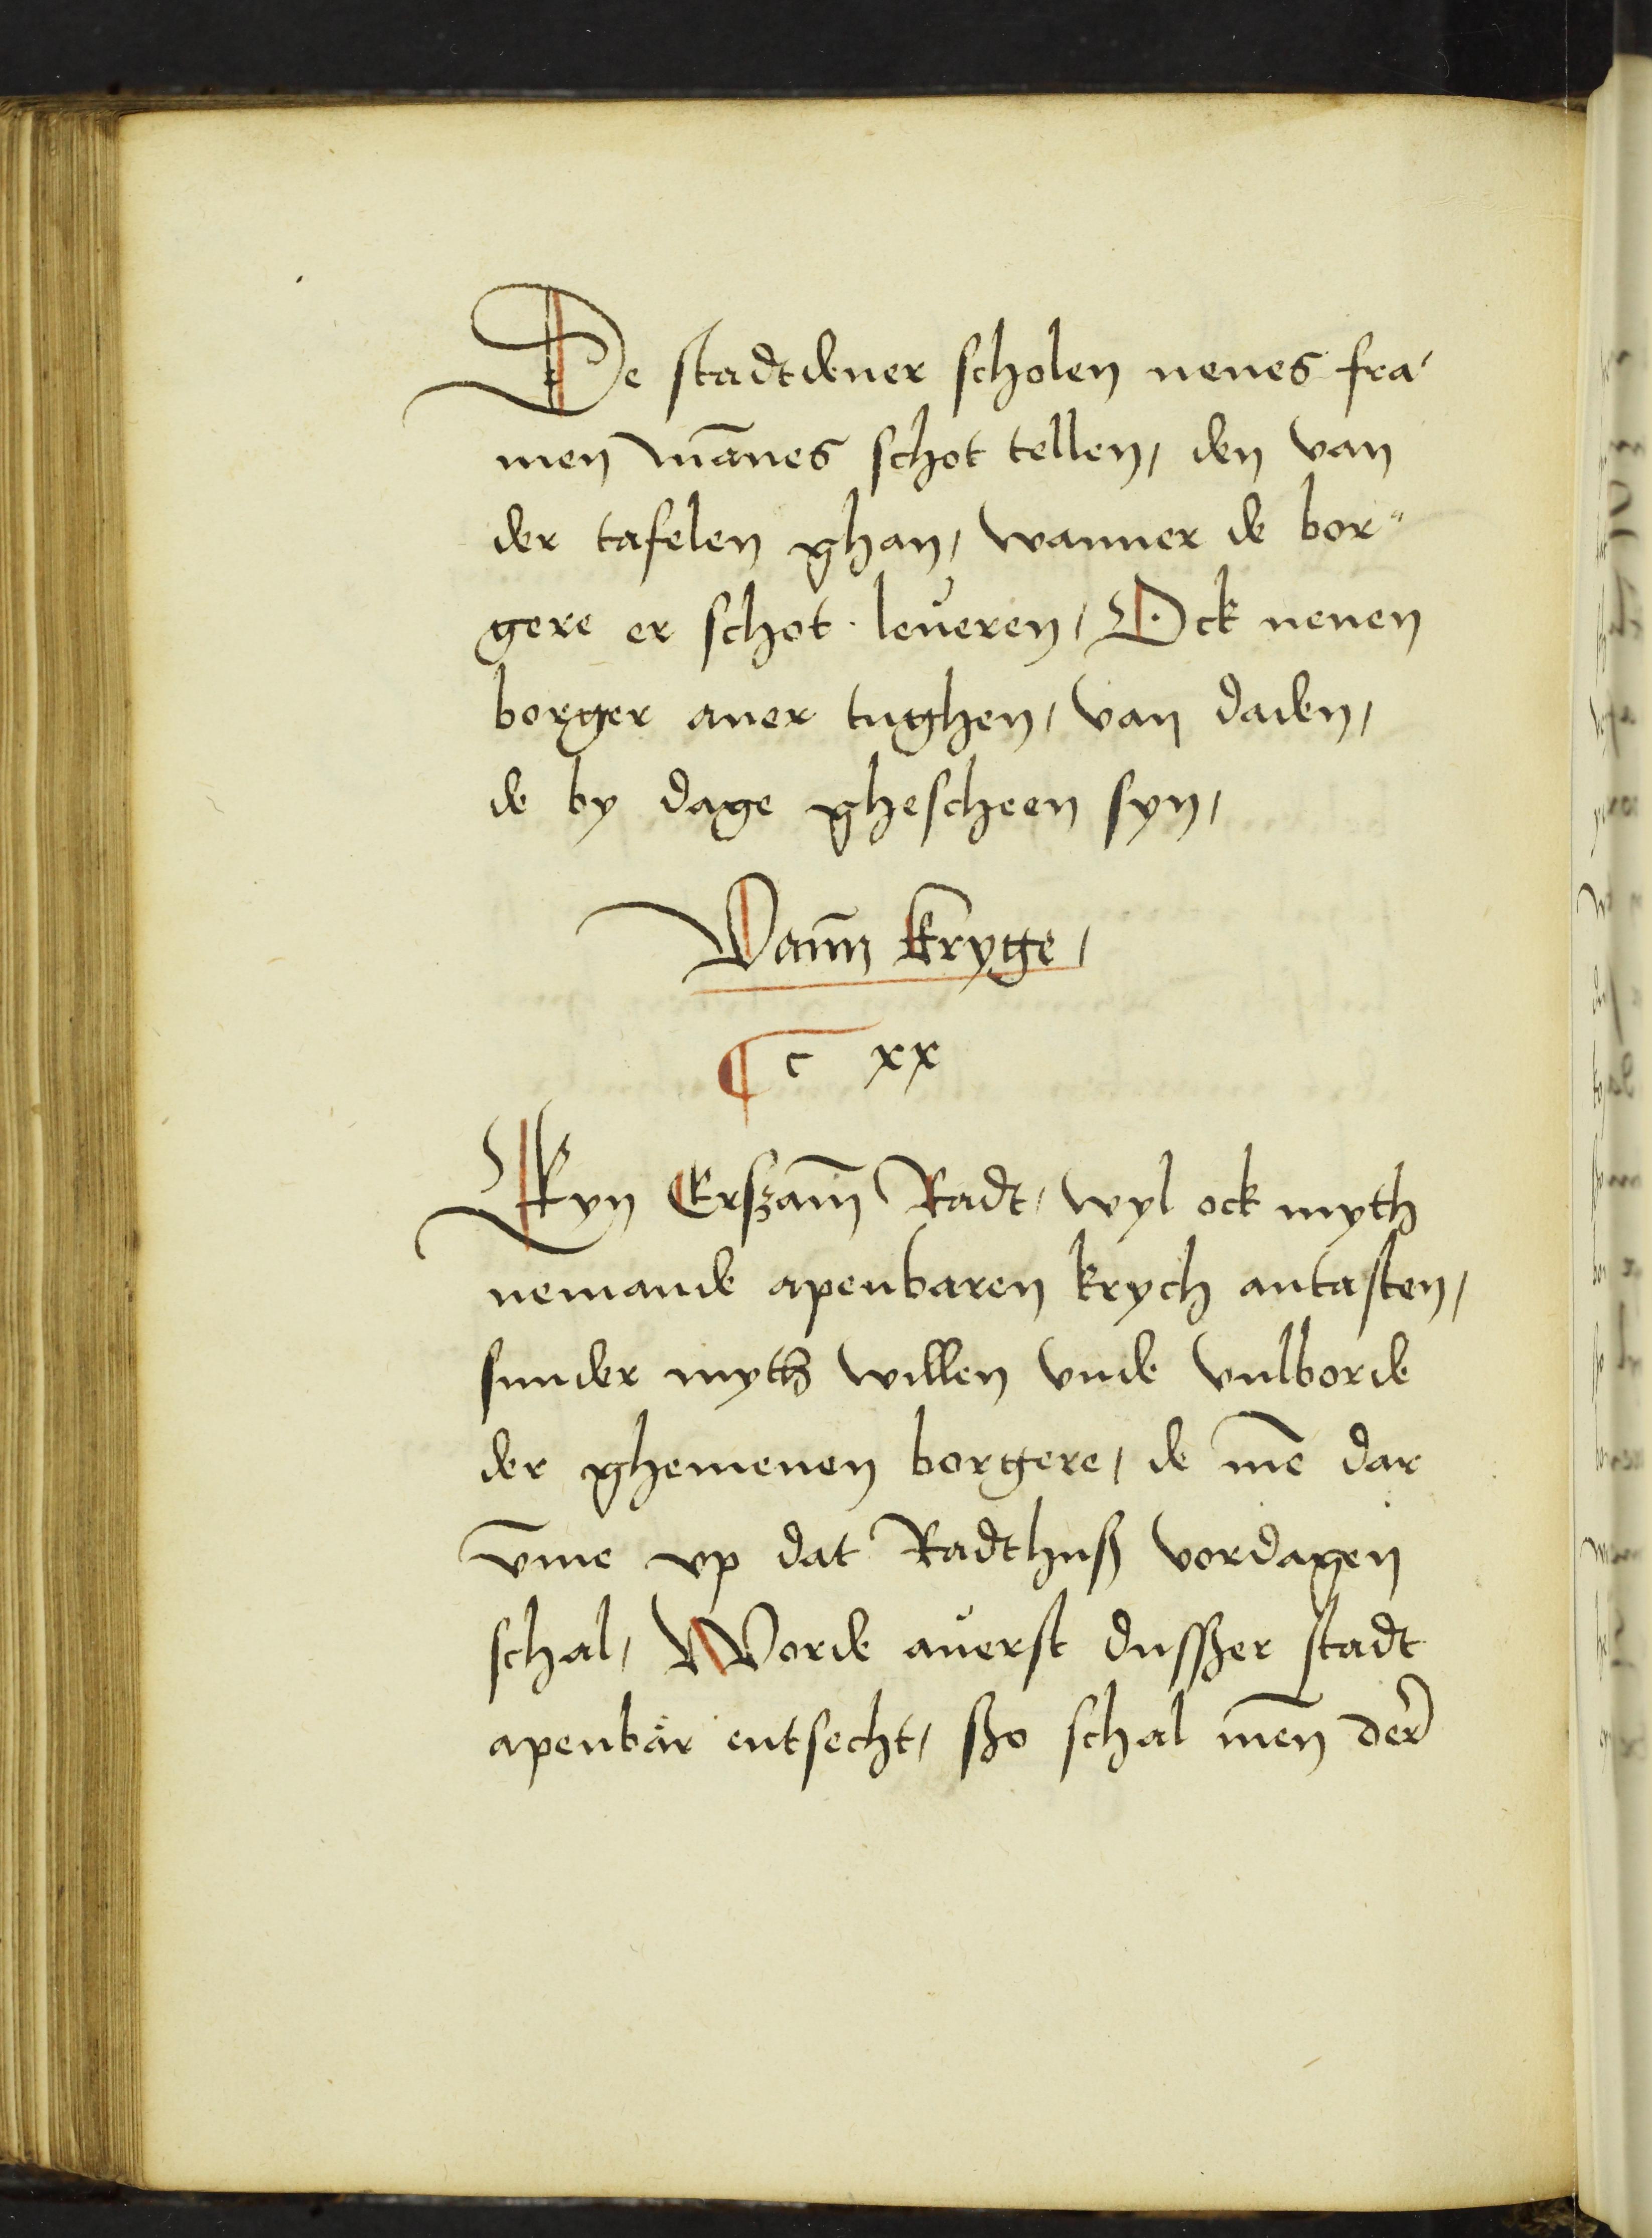 De stadtdener scholen nenes fra-
men mānes schot tellen, den van
der tafelen ghan, wanner de bor-
gere er schot leueren, Ock nenen
borger auer tughen, van daden,
de by dage ghescheen syn,
Vann kryge,
¶ c xx
Eyn Erßam̄ Radt, wyl ock myth
nemande apenbaren krych antasten,
sunder myth willen vnde vulborde
der ghemenen borgere, de mē dar
v̄me vp dat Radthuß vordagen
schal, Worde auerst dusßer stadt
apenbar entsecht, ßo schal men der